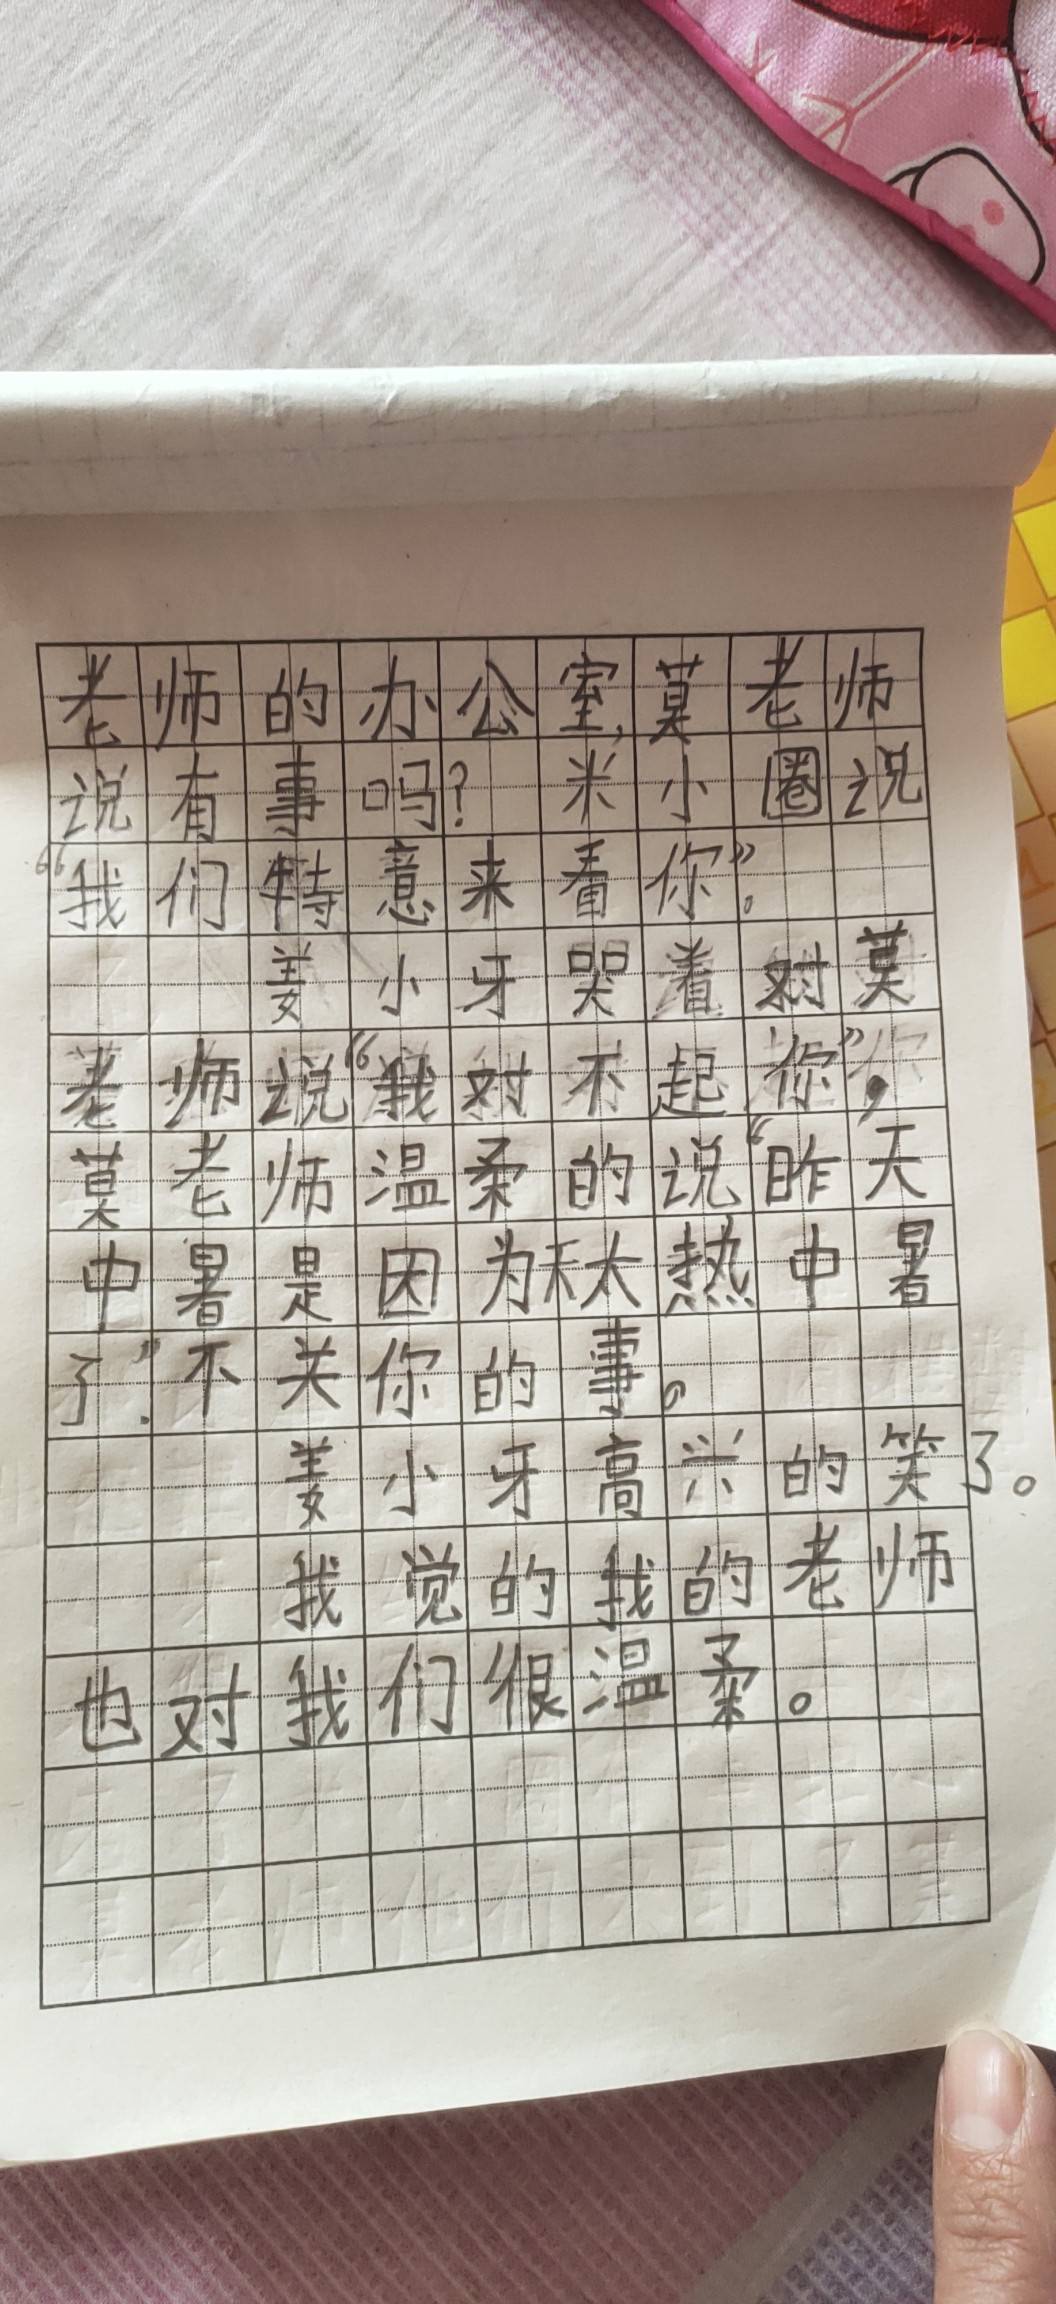 老师的办公室,莫老师
说有事吗?米小圈说
“我们特意来看你”。
姜小牙哭着对莫
老师说“我对不起你”,
莫老师温柔的说“昨天
中暑是因为天太热中暑
了”.不关你的事。
姜小牙高兴的笑了。
我觉的我的老师
也对我们很温柔。